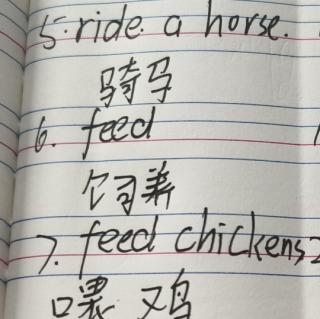 5. ride a horse.
骑马
6. feed
饲养
7. feed chickens
喂鸡